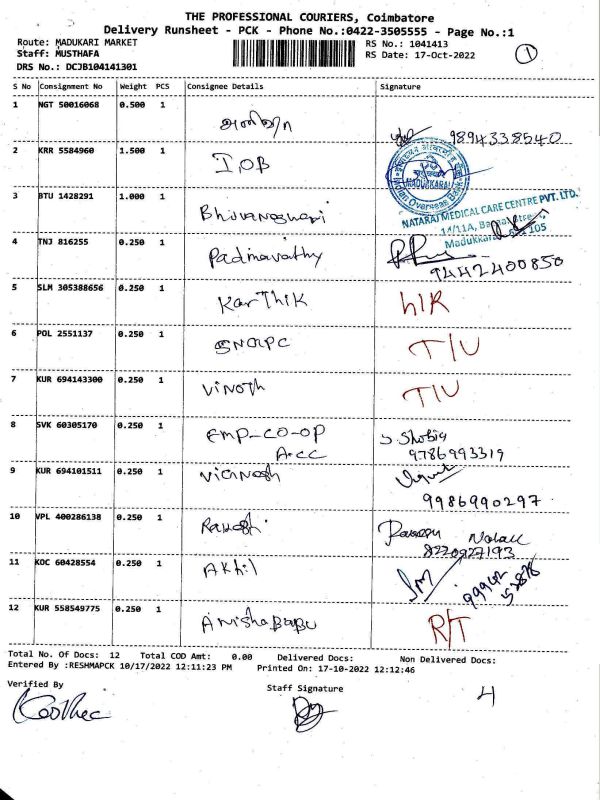 THE PROFESSIONAL COURIERS, Coimbatore
Delivery Runsheet - PCK - Phone No.:0422-3505555 - Page No.:1
Route: MADUKARI MARKET
RS No.: 1041413
1
Staff: MUSTHAFA
RS Date: 17-Oct-2022
DRS No.: DCJB104141301
S No Consignment No Weight PCS Consignee Details Signature
1 NGT 50016068 0.500 1
9894338540
2 KRR 5584960 1.500 1 IOB
MADUKKARAI
Indian Overseas Bank
3 BTU 1428291 1.000 1 Bhuvaneshwari
NATARAJ MEDICAL CARE CENTRE PVT. LTD.
14/11A,
Madukkarai 641 105
4 TNJ 816255 0.250 1 Padmavathy
9442400850
5 SLM 305388656 0.250 1 Karthik h/R
6 POL 2551137 0.250 1 T/U
7 KUR 694143300 0.250 1 Vinoth T/U
8 SVK 60305170 0.250 1 EMP-CO-OP S. Shobia
A.CC 9786993319
9 KUR 694101511 0.250 1 Vignesh
9986990297
10 VPL 400286138 0.250 1
8220927193
11 KOC 60428554 0.250 1 Akhil
99942
52878
12 KUR 558549775 0.250 1 Anishababu R/T
Total No. Of Docs: 12 Total COD Amt: 0.00 Delivered Docs: Non Delivered Docs:
Entered By :RESHMAPCK 10/17/2022 12:11:23 PM Printed On: 17-10-2022 12:12:46
Verified By
Staff Signature
4